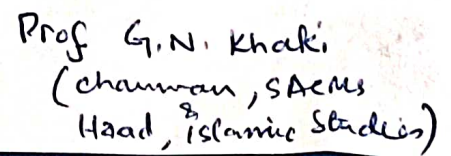 Prof G.N. Khaki
(Chairman, SACRS
& Head, Islamic Studies)